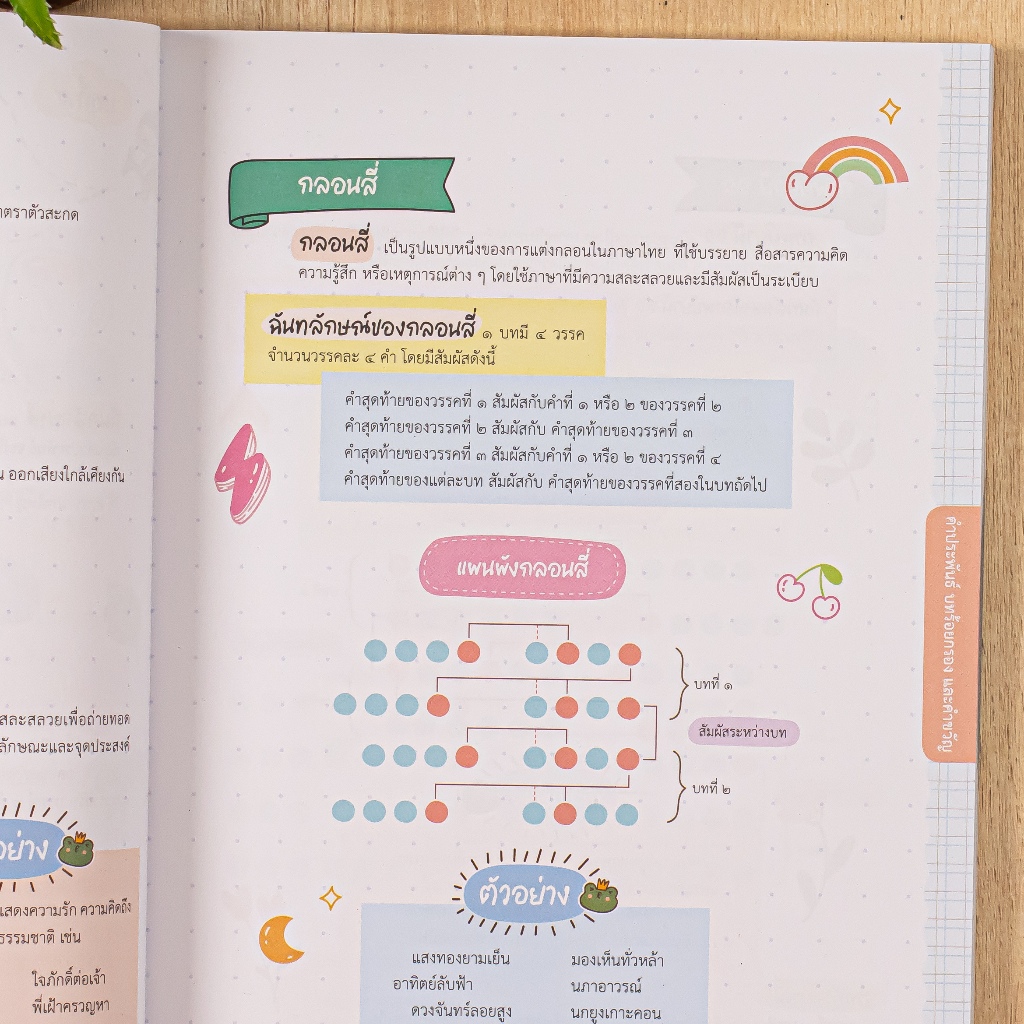 ตราตัวสะกด
ออกเสียงใกล้เคียงกัน
สละสลวยเพื่อถ่ายทอด
ลักษณะและจุดประสงค์
อย่าง
แสดงความรัก ความคิดถึง
ธรรมชาติ เช่น
ใจภักดิ์ต่อเจ้า
พี่เฝ้าครวญหา
กลอนสี่
กลอนสี่ เป็นรูปแบบหนึ่งของการแต่งกลอนในภาษาไทย ที่ใช้บรรยาย สื่อสารความคิด
ความรู้สึก หรือเหตุการณ์ต่าง ๆ โดยใช้ภาษาที่มีความสละสลวยและมีสัมผัสเป็นระเบียบ
ฉันทลักษณ์ของกลอนสี่ ๑ บทมี ๔ วรรค
จำนวนวรรคละ ๔ คำ โดยมีสัมผัสดังนี้
คำสุดท้ายของวรรคที่ ๑ สัมผัสกับคำที่ ๑ หรือ ๒ ของวรรคที่ ๒
คำสุดท้ายของวรรคที่ ๒ สัมผัสกับ คำสุดท้ายของวรรคที่ ๓
คำสุดท้ายของวรรคที่ ๓ สัมผัสกับคำที่ ๑ หรือ ๒ ของวรรคที่ ๔
คำสุดท้ายของแต่ละบท สัมผัสกับ คำสุดท้ายของวรรคที่สองในบทถัดไป
แผนผังกลอนสี่
บทที่ ๑
สัมผัสระหว่างบท
บทที่ ๒
ตัวอย่าง
แสงทองยามเย็น มองเห็นทั่วหล้า
อาทิตย์ลับฟ้า นภาอาวรณ์
ดวงจันทร์ลอยสูง นกยูงเกาะคอน
คำประพันธ์ บทร้อยกรอง และคำขวัญ